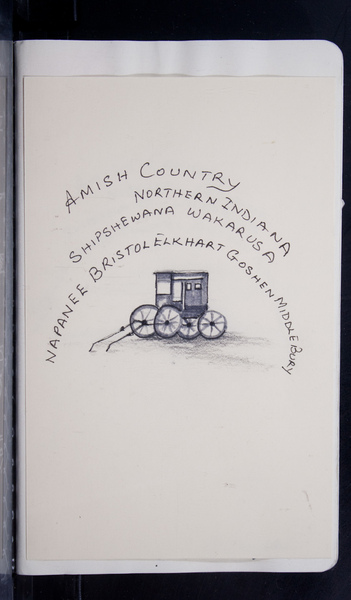 AMISH COUNTRY
NORTHERN INDIANA
SHIPSHEWANA WAKARUSA
NAPANEE BRISTOL ELKHART GOSHEN MIDDLEBURY